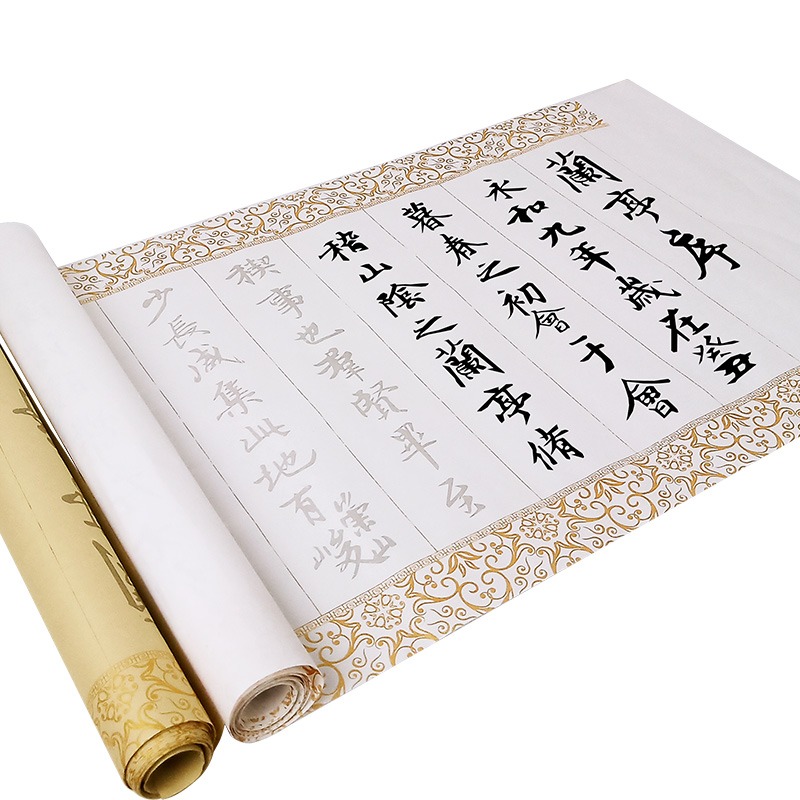 蘭亭序
永和九年歲在癸丑
暮春之初會于會
稽山陰之蘭亭脩
稧事也羣賢畢至
少長咸集此地有崇山峻